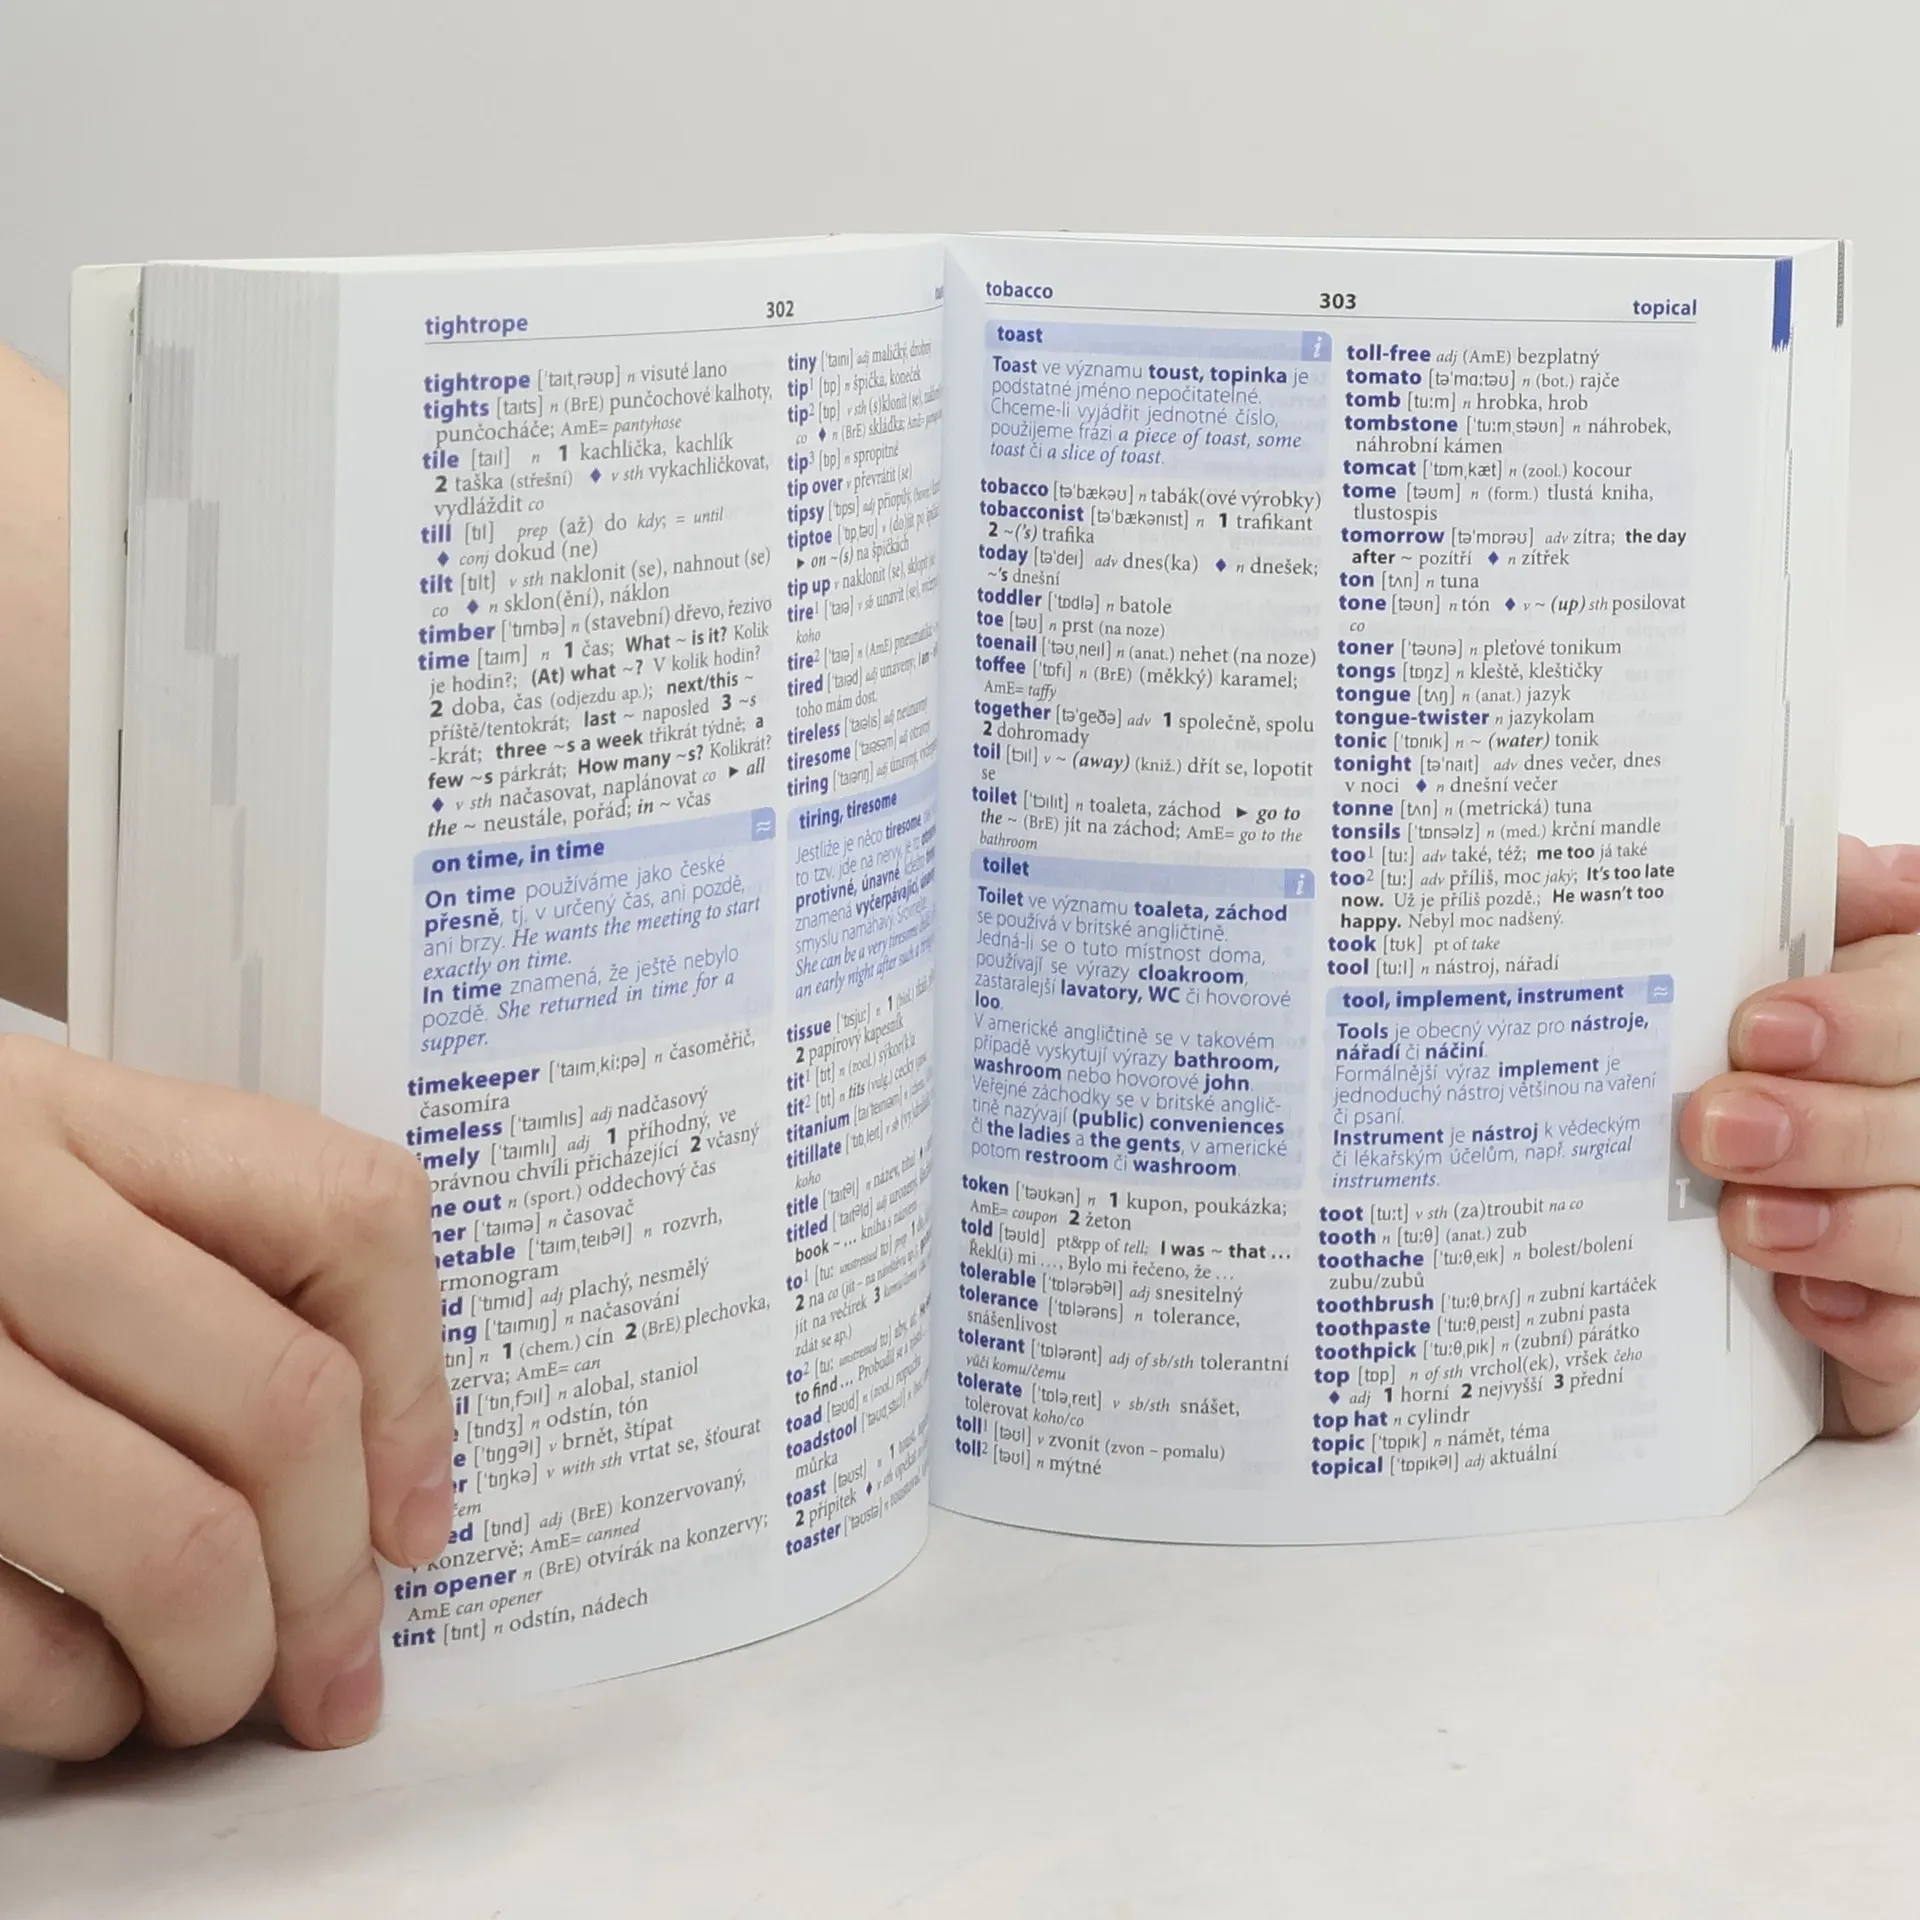 tightrope
302
tightrope [ˈtaɪtˌrəʊp] n visuté lano
tights [taɪts] n (BrE) punčochové kalhoty,
punčocháče; AmE= pantyhose
tile [taɪl] n 1 kachlička, kachlík
2 taška (střešní) ♦ v sth vykachličkovat,
vydláždit co
till [tɪl] prep (až) do kdy; = until
♦ conj dokud (ne)
tilt [tɪlt] v sth naklonit (se), nahnout (se)
co ♦ n sklon(ění), náklon
timber [ˈtɪmbə] n (stavební) dřevo, řezivo
time [taɪm] n 1 čas; What ~ is it? Kolik
je hodin?; (At) what ~? V kolik hodin?
2 doba, čas (odjezdu ap.); next/this ~
příště/tentokrát; last ~ naposled 3 ~s
-krát; three ~s a week třikrát týdně; a
few ~s párkrát; How many ~s? Kolikrát?
♦ v sth načasovat, naplánovat co ► all
the ~ neustále, pořád; in ~ včas
on time, in time ≈
On time používáme jako české
přesně, tj. v určený čas, ani pozdě,
ani brzy. He wants the meeting to start
exactly on time.
In time znamená, že ještě nebylo
pozdě. She returned in time for a
supper.
timekeeper [ˈtaɪmˌkiːpə] n časoměřič,
časomíra
timeless [ˈtaɪmlɪs] adj nadčasový
mely [ˈtaɪmlɪ] adj 1 příhodný, ve
právnou chvíli přicházející 2 včasný
ne out n (sport.) oddechový čas
ner [ˈtaɪmə] n časovač
netable [ˈtaɪmˌteɪbəl] n rozvrh,
rmonogram
id [ˈtɪmɪd] adj plachý, nesmělý
ing [ˈtaɪmɪŋ] n načasování
tɪn] n 1 (chem.) cín 2 (BrE) plechovka,
zerva; AmE= can
il [ˈtɪnˌfɔɪl] n alobal, staniol
[tɪndʒ] n odstín, tón
e [ˈtɪŋgəl] v brnět, štípat
er [ˈtɪŋkə] v with sth vrtat se, šťourat
čem
ed [tɪnd] adj (BrE) konzervovaný,
v konzervě; AmE= canned
tin opener n (BrE) otvírák na konzervy;
AmE can opener
tint [tɪnt] n odstín, nádech
tiny [ˈtaɪnɪ] adj maličký, drobný
tip¹ [tɪp] n špička, koneček
tip² [tɪp] v sth (s)klonit (se),
co ♦ n (BrE) skládka;
tip³ [tɪp] n spropitné
tip over v převrátit (se)
tipsy [ˈtɪpsɪ] adj přiopilý,
tiptoe [ˈtɪpˌtəʊ] v (do)jít po
► on ~(s) na špičkách
tip up v naklonit (se), sklopit
tire¹ [ˈtaɪə] v sb unavit (se),
koho
tire² [ˈtaɪə] n (AmE) pneumatika
tired [ˈtaɪəd] adj unavený;
toho mám dost.
tireless [ˈtaɪəlɪs] adj neúnavný
tiresome [ˈtaɪəsəm] adj otravný
tiring [ˈtaɪərɪŋ] adj únavný,
tiring, tiresome
Jestliže je něco tiresome
to tzv. jde na nervy, je to
protivné, únavné.
znamená vyčerpávající,
smyslu namáhavý.
She can be a very tiresome
an early night after such a
tissue [ˈtɪsjuː] n 1 (biol.)
2 papírový kapesník
tit¹ [tɪt] n (zool.) sýkor(k)a
tit² [tɪt] n tits (vulg.) cecky
titanium
titillate
koho
title [ˈtaɪtəl] n název, titul
titled [ˈtaɪtəld] adj
book ~ ... kniha s názvem
to¹ [tuː unstressed tə] prep 1
2 na co
jít na večírek 3
zdát se ap.)
to² [tuː unstressed tə]
to find ...
toad [təʊd] n (zool.) ropucha
toadstool
můrka
toast [təʊst] n 1
2 přípitek ♦ v sth
toaster [ˈtəʊstə] n
tobacco
303
topical
toast i
Toast ve významu toust, topinka je
podstatné jméno nepočitatelné.
Chceme-li vyjádřit jednotné číslo,
použijeme frázi a piece of toast, some
toast či a slice of toast.
tobacco [təˈbækəʊ] n tabák(ové výrobky)
tobacconist [təˈbækənɪst] n 1 trafikant
2 ~(ʼs) trafika
today [təˈdeɪ] adv dnes(ka) ♦ n dnešek;
~ʼs dnešní
toddler [ˈtɒdlə] n batole
toe [təʊ] n prst (na noze)
toenail [ˈtəʊˌneɪl] n (anat.) nehet (na noze)
toffee [ˈtɒfɪ] n (BrE) (měkký) karamel;
AmE= taffy
together [təˈgeðə] adv 1 společně, spolu
2 dohromady
toil [tɔɪl] v ~ (away) (kniž.) dřít se, lopotit
se
toilet [ˈtɔɪlɪt] n toaleta, záchod ► go to
the ~ (BrE) jít na záchod; AmE= go to the
bathroom
toilet i
Toilet ve významu toaleta, záchod
se používá v britské angličtině.
Jedná-li se o tuto místnost doma,
používají se výrazy cloakroom,
zastaralejší lavatory, WC či hovorové
loo.
V americké angličtině se v takovém
případě vyskytují výrazy bathroom,
washroom nebo hovorové john.
Veřejné záchodky se v britské anglič-
tině nazývají (public) conveniences
či the ladies a the gents, v americké
potom restroom či washroom.
token [ˈtəʊkən] n 1 kupon, poukázka;
AmE= coupon 2 žeton
told [təʊld] pt&pp of tell; I was ~ that ...
Řekl(i) mi ..., Bylo mi řečeno, že ...
tolerable [ˈtɒlərəbəl] adj snesitelný
tolerance [ˈtɒlərəns] n tolerance,
snášenlivost
tolerant [ˈtɒlərənt] adj of sb/sth tolerantní
vůči komu/čemu
tolerate [ˈtɒləˌreɪt] v sb/sth snášet,
tolerovat koho/co
toll¹ [təʊl] v zvonit (zvon – pomalu)
toll² [təʊl] n mýtné
toll-free adj (AmE) bezplatný
tomato [təˈmɑːtəʊ] n (bot.) rajče
tomb [tuːm] n hrobka, hrob
tombstone [ˈtuːmˌstəʊn] n náhrobek,
náhrobní kámen
tomcat [ˈtɒmˌkæt] n (zool.) kocour
tome [təʊm] n (form.) tlustá kniha,
tlustospis
tomorrow [təˈmɒrəʊ] adv zítra; the day
after ~ pozítří ♦ n zítřek
ton [tʌn] n tuna
tone [təʊn] n tón ♦ v ~ (up) sth posilovat
co
toner [ˈtəʊnə] n pleťové tonikum
tongs [tɒŋz] n kleště, kleštičky
tongue [tʌŋ] n (anat.) jazyk
tongue-twister n jazykolam
tonic [ˈtɒnɪk] n ~ (water) tonik
tonight [təˈnaɪt] adv dnes večer, dnes
v noci ♦ n dnešní večer
tonne [tʌn] n (metrická) tuna
tonsils [ˈtɒnsəlz] n (med.) krční mandle
too¹ [tuː] adv také, též; me too já také
too² [tuː] adv příliš, moc jaký; It's too late
now. Už je příliš pozdě.; He wasn't too
happy. Nebyl moc nadšený.
took [tʊk] pt of take
tool [tuːl] n nástroj, nářadí
tool, implement, instrument ≈
Tools je obecný výraz pro nástroje,
nářadí či náčiní.
Formálnější výraz implement je
jednoduchý nástroj většinou na vaření
či psaní.
Instrument je nástroj k vědeckým
či lékařským účelům, např. surgical
instruments.
toot [tuːt] v sth (za)troubit na co
tooth [tuːθ] (anat.) zub
toothache [ˈtuːθˌeɪk] n bolest/bolení
zubu/zubů
toothbrush [ˈtuːθˌbrʌʃ] n zubní kartáček
toothpaste [ˈtuːθˌpeɪst] n zubní pasta
toothpick [ˈtuːθˌpɪk] n (zubní) párátko
top [tɒp] n of sth vrchol(ek), vršek čeho
♦ adj 1 horní 2 nejvyšší 3 přední
top hat n cylindr
topic [ˈtɒpɪk] n námět, téma
topical [ˈtɒpɪkəl] adj aktuální
T